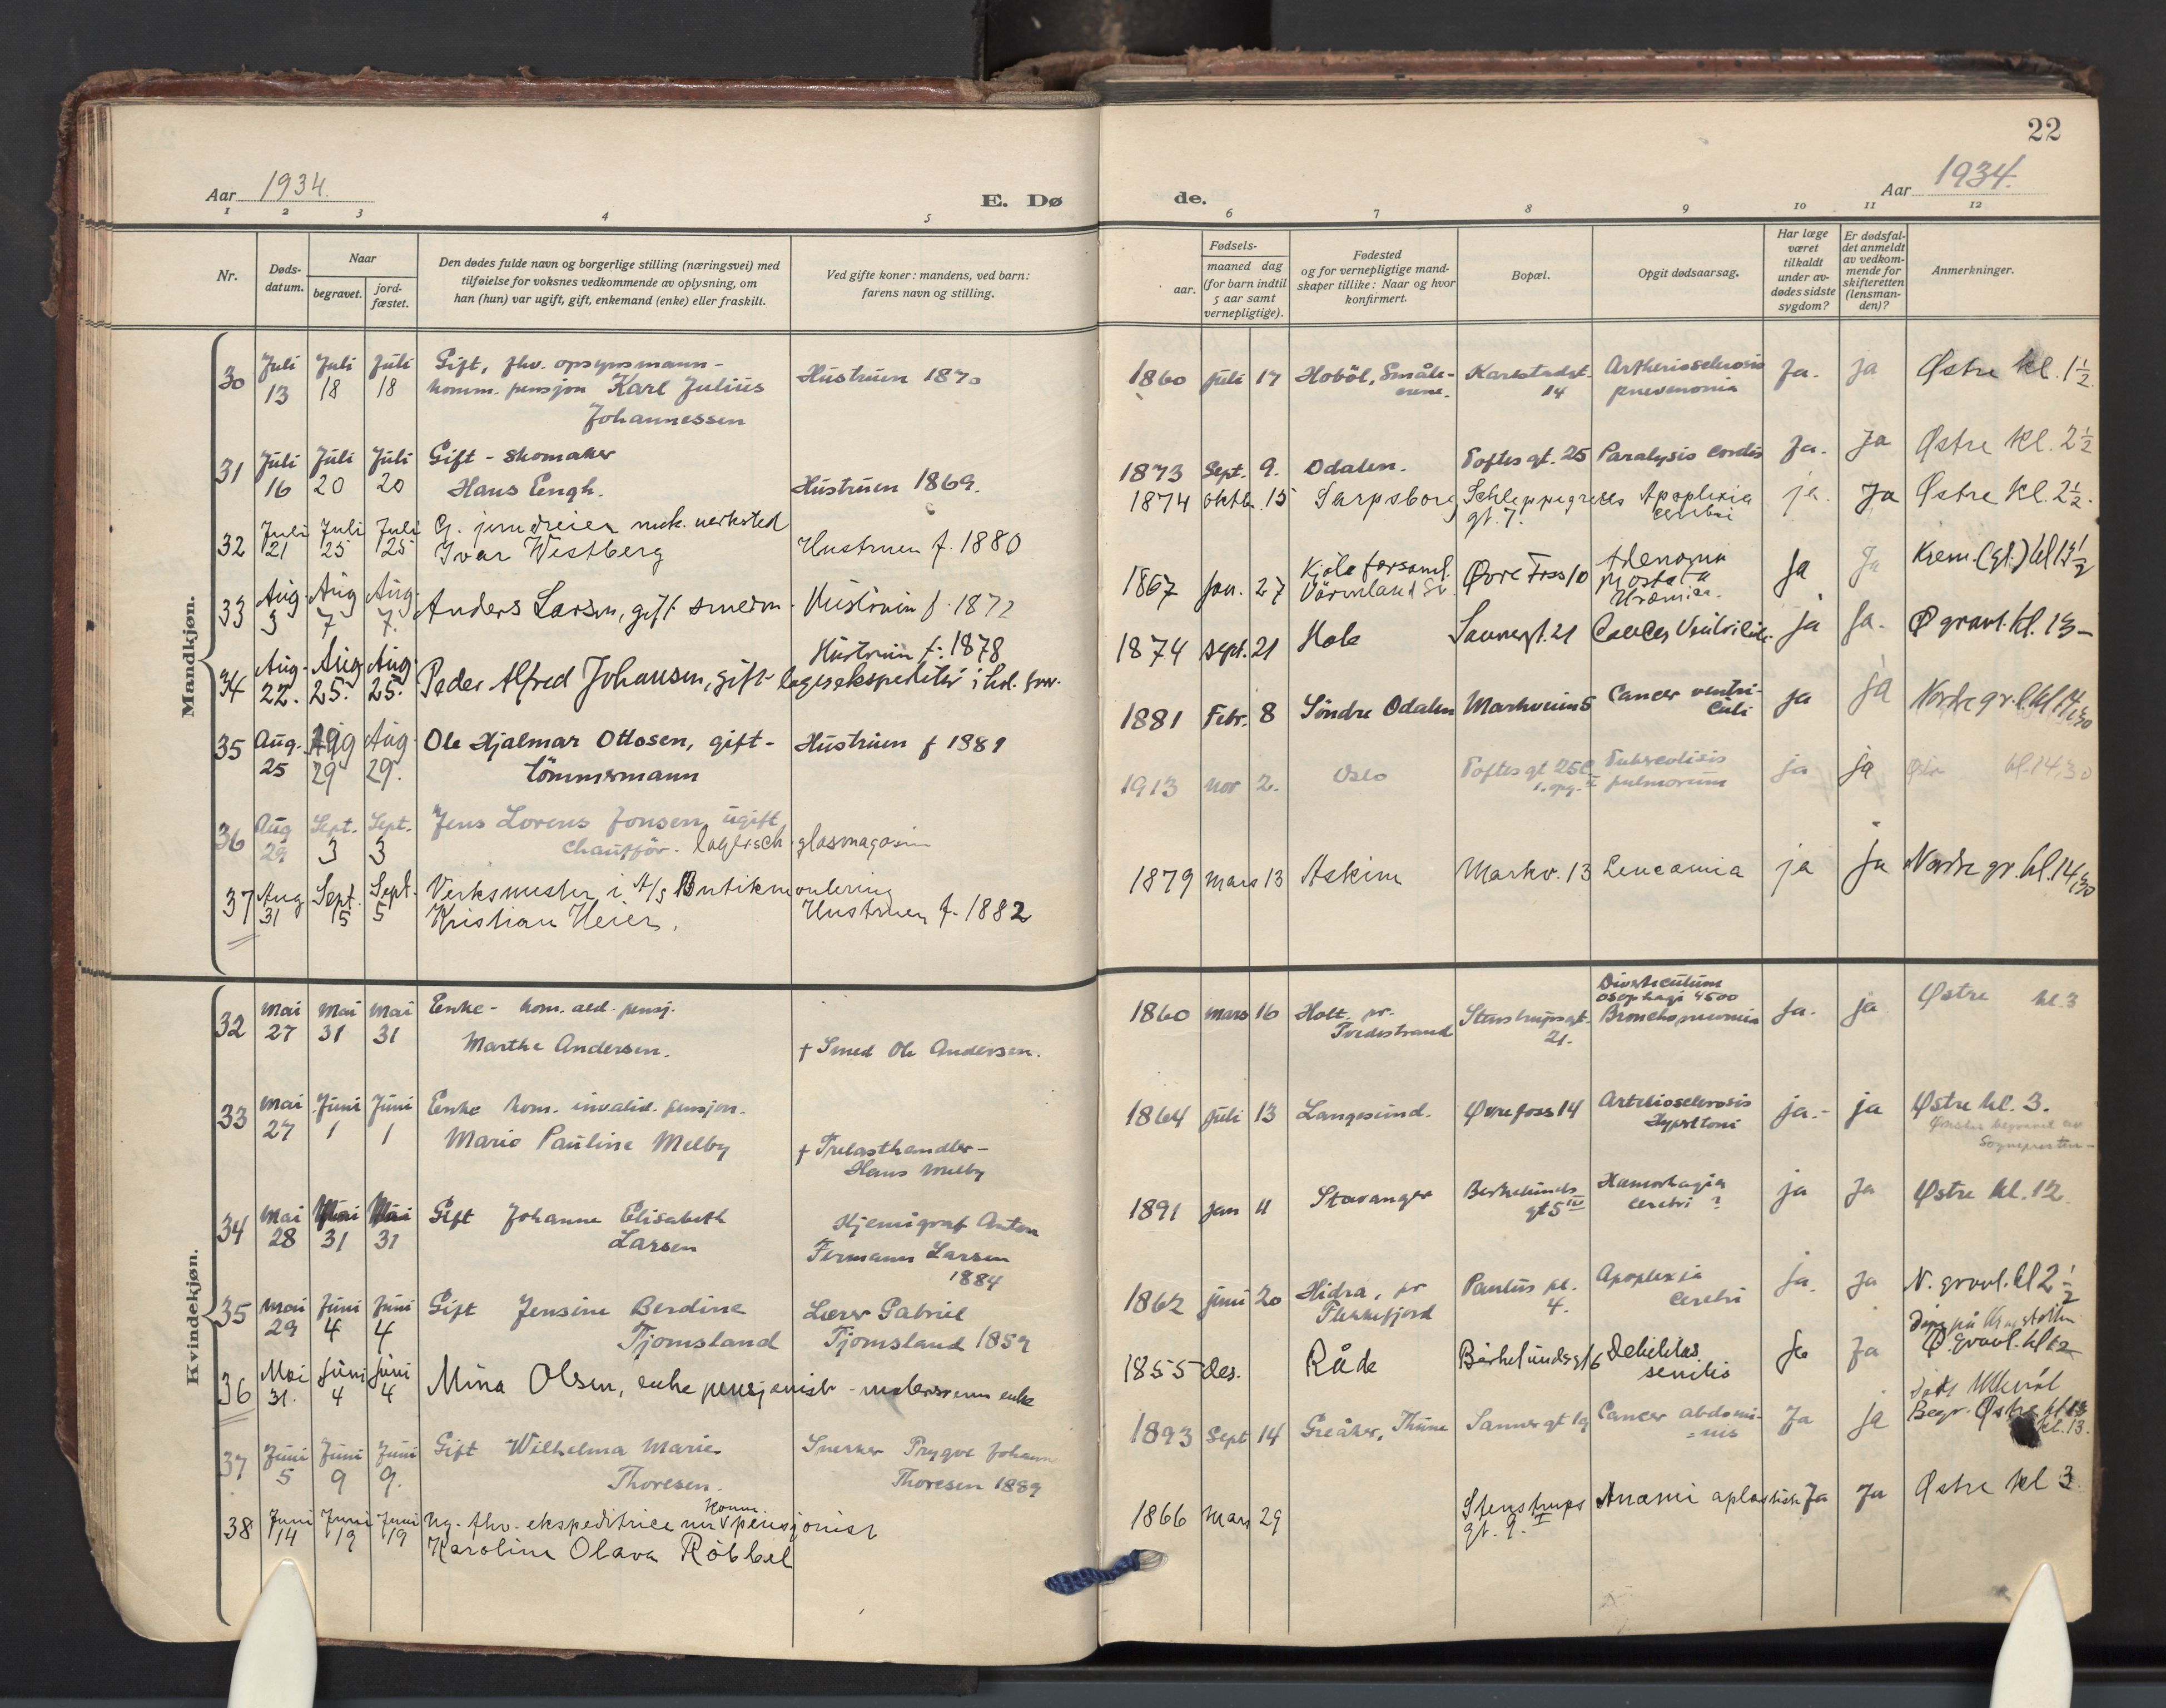 22
Aar 1934.
E. Dø
de.
Aar 1934.
1 2 3 4 5 6 7 8 9 10 11 12
Nr.
Døds-
datum.
Naar
begravet.
jord-
fæstet.
Den dødes fulde navn og borgerlige stilling (næringsvei) med
tilføielse for voksnes vedkommende av oplysning, om
han (hun) var ugift, gift, enkemand (enke) eller fraskilt.
Ved gifte koner: mandens, ved barn:
farens navn og stilling.
Fødsels-
aar.
maaned dag
(for barn indtil
5 aar samt
vernepligtige).
Fødested
og for vernepligtige mand-
skaper tillike: Naar og hvor
konfirmert.
Bopæl.
Opgit dødsaarsag.
Har læge
været
tilkaldt
under av-
dødes sidste
sygdom?
Er dødsfal-
det anmeldt
av vedkom-
mende for
skifteretten
(lensman-
den)?
Anmerkninger.
Mandkjøn.
30 Juli 13 Juli 18 Juli 18 Gift, fhv. opsynsmann-
komm. pensjon Karl Julius
Johannessen
Hustruen 1870
1860 juli 17 Hobøl, Småle-
nene.
Karlstadgt.
14
Artheriosclerosis
pneumonia
Ja. ja Østre kl. 1½
31 Juli 16 Juli 20 Juli 20 Gift - skomaker
Hans Engh.
Hustruen 1869.
1873 Sept. 9. Odalen. Toftes gt. 25 Paralysis cordis Ja. Ja Østre kl. 2½
32 Juli 21 Juli 25 Juli 25 G. jerndreier mek. verksted
Ivar Westberg
Hustruen f. 1880
1874 oktb. 15 Sarpsborg Schleppegrells
gt. 7.
Apoplexia
cerebri
ja. Ja Østre kl. 2½.
33 Aug. 3 Aug 7 Aug. 7. Anders Larsen, gift Hustruen f. 1872
1867 Jan. 27 Kjøla forsaml.
Värmland Sv.
Øvre Foss 10 Adenoma
prostata
Uræmia.
Ja Ja Krem. (gl.) kl 13½
34 Aug. 22. Aug. 25. Aug. 25. Peder Alfred Johansen, gift lagerekspeditør i
Hustruen f. 1878
1874 sept. 21 Hole Sannergt. 21 Cancer Ventriculi ja Ja. Ø gravl. kl. 13-
35 Aug. 25 Aug 29 Aug. 29. Ole Hjalmar Ottosen, gift-
tömmermann
Hustruen f 1881
1881 Febr. 8 Söndre Odalen Markveien 5 Cancer ventri-
culi
ja ja Nordre gr. l. kl 14,30
36 Aug 29 Sept. 3 Sept. 3 Jens Lorens Jonsen, ugift
chauffør. glasmagasin
1913 nov 2. Oslo Toftes gt 25C
1. opg.
Tuberculosis
pulmonum
ja ja Østre kl. 14,30
37 Aug 31 Sept. 5 Sept. 5 Verksmester i A/S Butikmontering
Kristian Heier.
Hustruen f. 1882
1879 mars 13 Askim Markv. 13 Leucamia ja ja Nordre gr. kl. 14,30
Kvindekjøn.
32 Mai 27 Mai 31 Mai 31 Enke - kom. ald. pensj.
Marthe Andersen.
† Smed Ole Andersen.
1860 mars 16 Holt pr.
Tvedestrand
Stenstrupsgt.
21.
Diverticulum
osophagi 4500
Bronchopneumia
Ja. ja Østre kl. 3
33 Mai 27 Juni 1 Juni 1 Enke kom. invalid. pensjon.
Marie Pauline Melby
† Trelasthandler-
Hans Melby
1864 juli 13 Langesund. Øvrefoss 14 Arteriosclerosis
Hypertoni
ja.- ja Østre kl. 3.
Ønsker begravet av
Sognepresten-
34 Mai 28 Mai 31 Mai 31 Gift Johanne Elisabeth
Larsen
Hjemigraf Anton
Fermann Larsen
1884
1891 Jan 11 Stavanger Berkelunds
gt 5 IV
Hæmorhagia
cerebri ?
ja Ja Østre kl. 12.
35 Mai 29 Juni 4 Juni 4 Gift Jensine Berdine
Tjomsland
Lærer Gabriel
Tjomsland 1859
1862 juni 20 Hidra, pr
Flekkefjord
Paulus pl.
4.
Apoplexia
cerebri
ja. Ja N. gravl. kl 2½
36 Mai 31. Juni 4 Juni 4 Mina Olsen, enke pensjonist - enke
1855 des. Råde Birkelundsgt 6 Debilitas
senilis
Ja Ja Ø. gravl. kl 12
37 Juni 5 Juni 9 Juni 9. Gift Wilhelma Marie
Thoresen.
Snekker Trygve Johann
Thoresen 1889
1893 Sept 14 Greåker, Thune Sannergt 19 Cancer abdomi-
nis
Ja ja Begr. Østre
kl. 13.
38 Juni 14 Juni 19 Juni 19 Ug. fhv. ekspeditrice nu komm. pensjonist
Karoline Olava Röbbel
1866 Mars 29 Stenstrups
gt. 9. I
Anæmi aplastisk Ja Ja Østre kl 3.